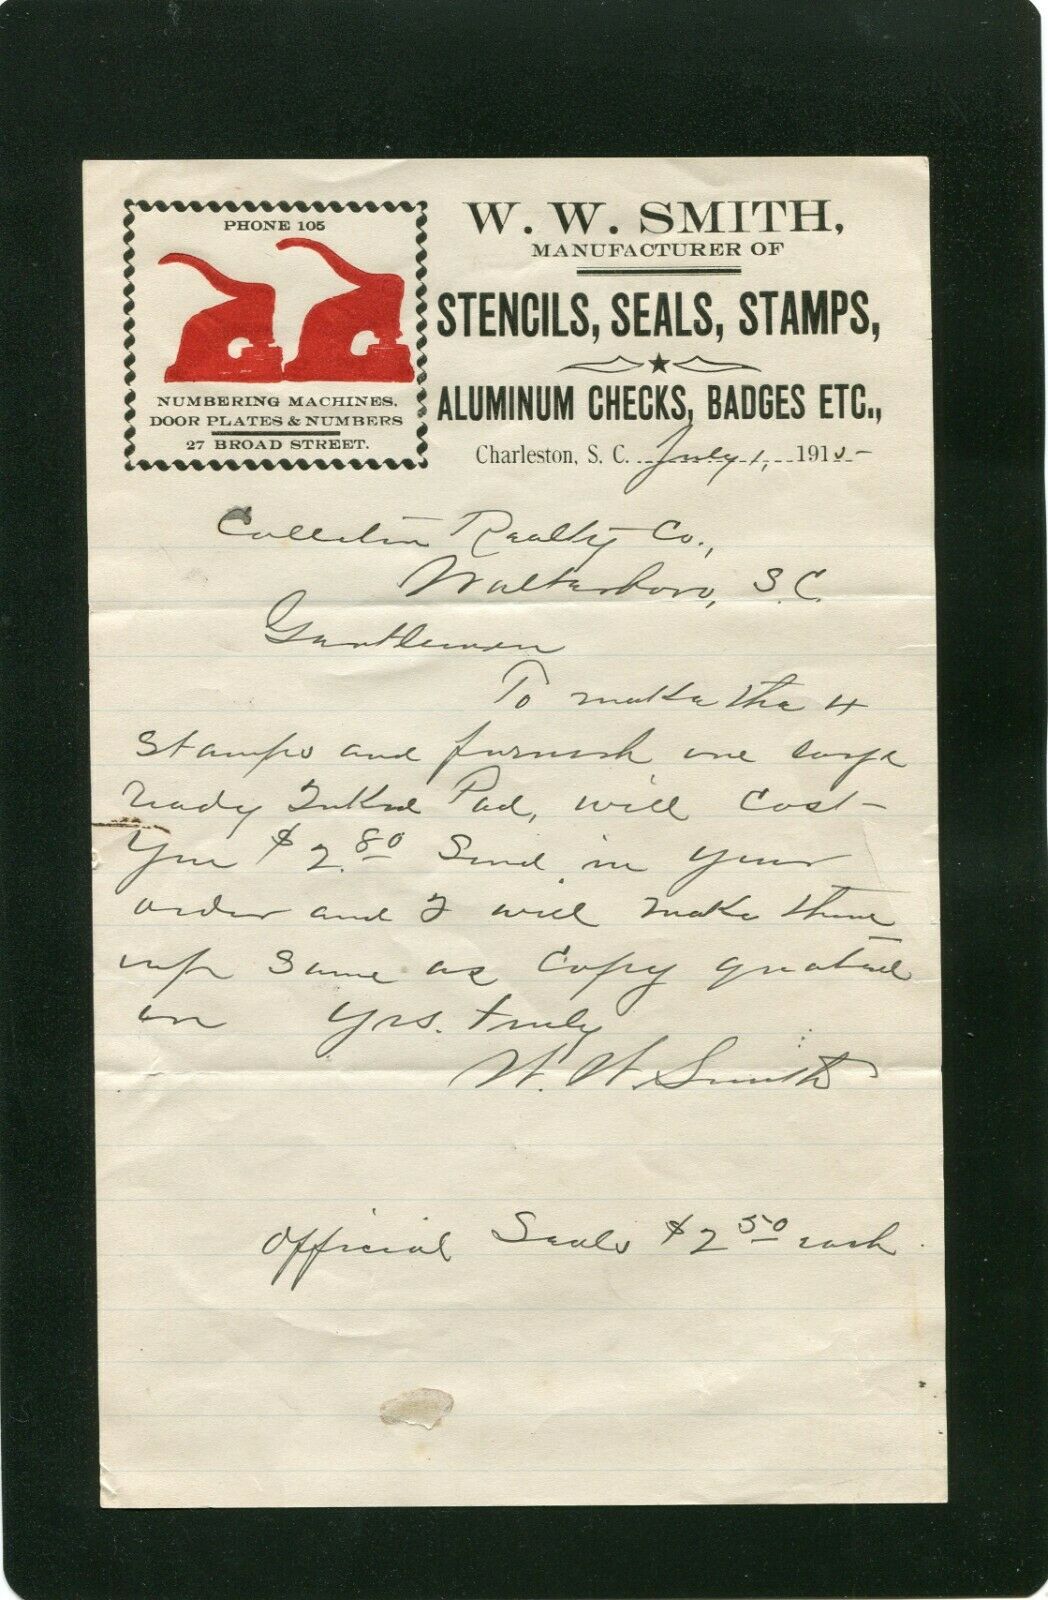 PHONE 105
NUMBERING MACHINES,
DOOR PLATES & NUMBERS
27 BROAD STREET.
W. W. SMITH,
MANUFACTURER OF
STENCILS, SEALS, STAMPS,
ALUMINUM CHECKS, BADGES ETC.,
Charleston, S. C. July 1, 1915
Colleton Realty Co.,
Walterboro, S.C.
Gentlemen
To make the 4
stamps and furnish one large
ready Inked Pad, will cost
you $2.80 Send in your
order and I will make them
up same as copy quoted
on Yrs. truly
W. W. Smith
Official Seals $2.50 each